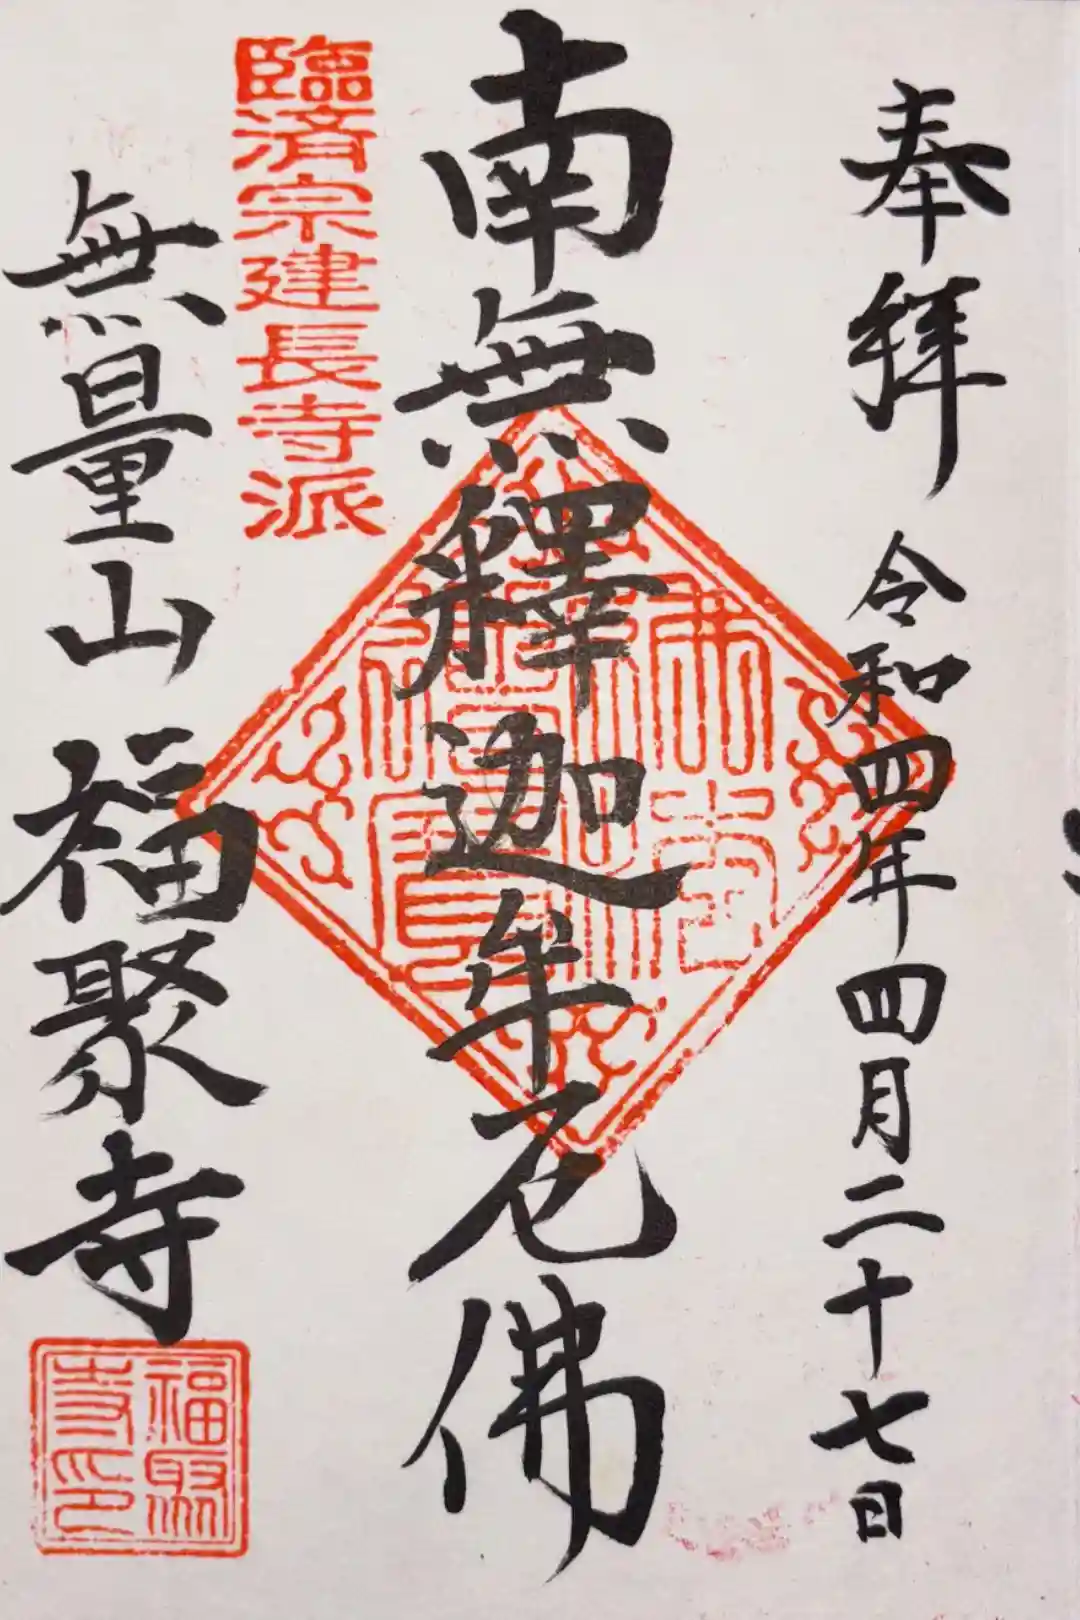 奉拝 令和四年四月二十七日
南無釋迦牟尼佛
臨済宗建長寺派
無量山 福聚寺
福聚寺印